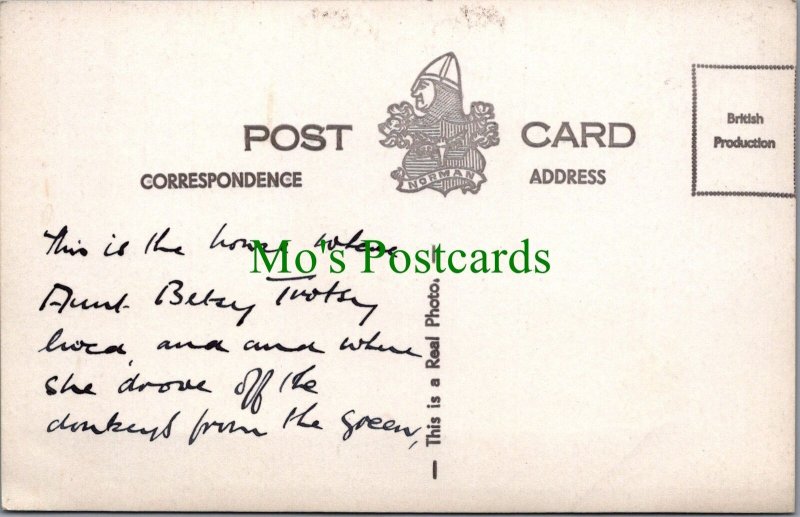 POST CARD
NORMAN
CORRESPONDENCE
ADDRESS
British
Production
This is the house where
Aunt Betsy Trotsy
lived, and and where
she drove off the
donkeys from the green,
— This is a Real Photo. —
Mo's Postcards